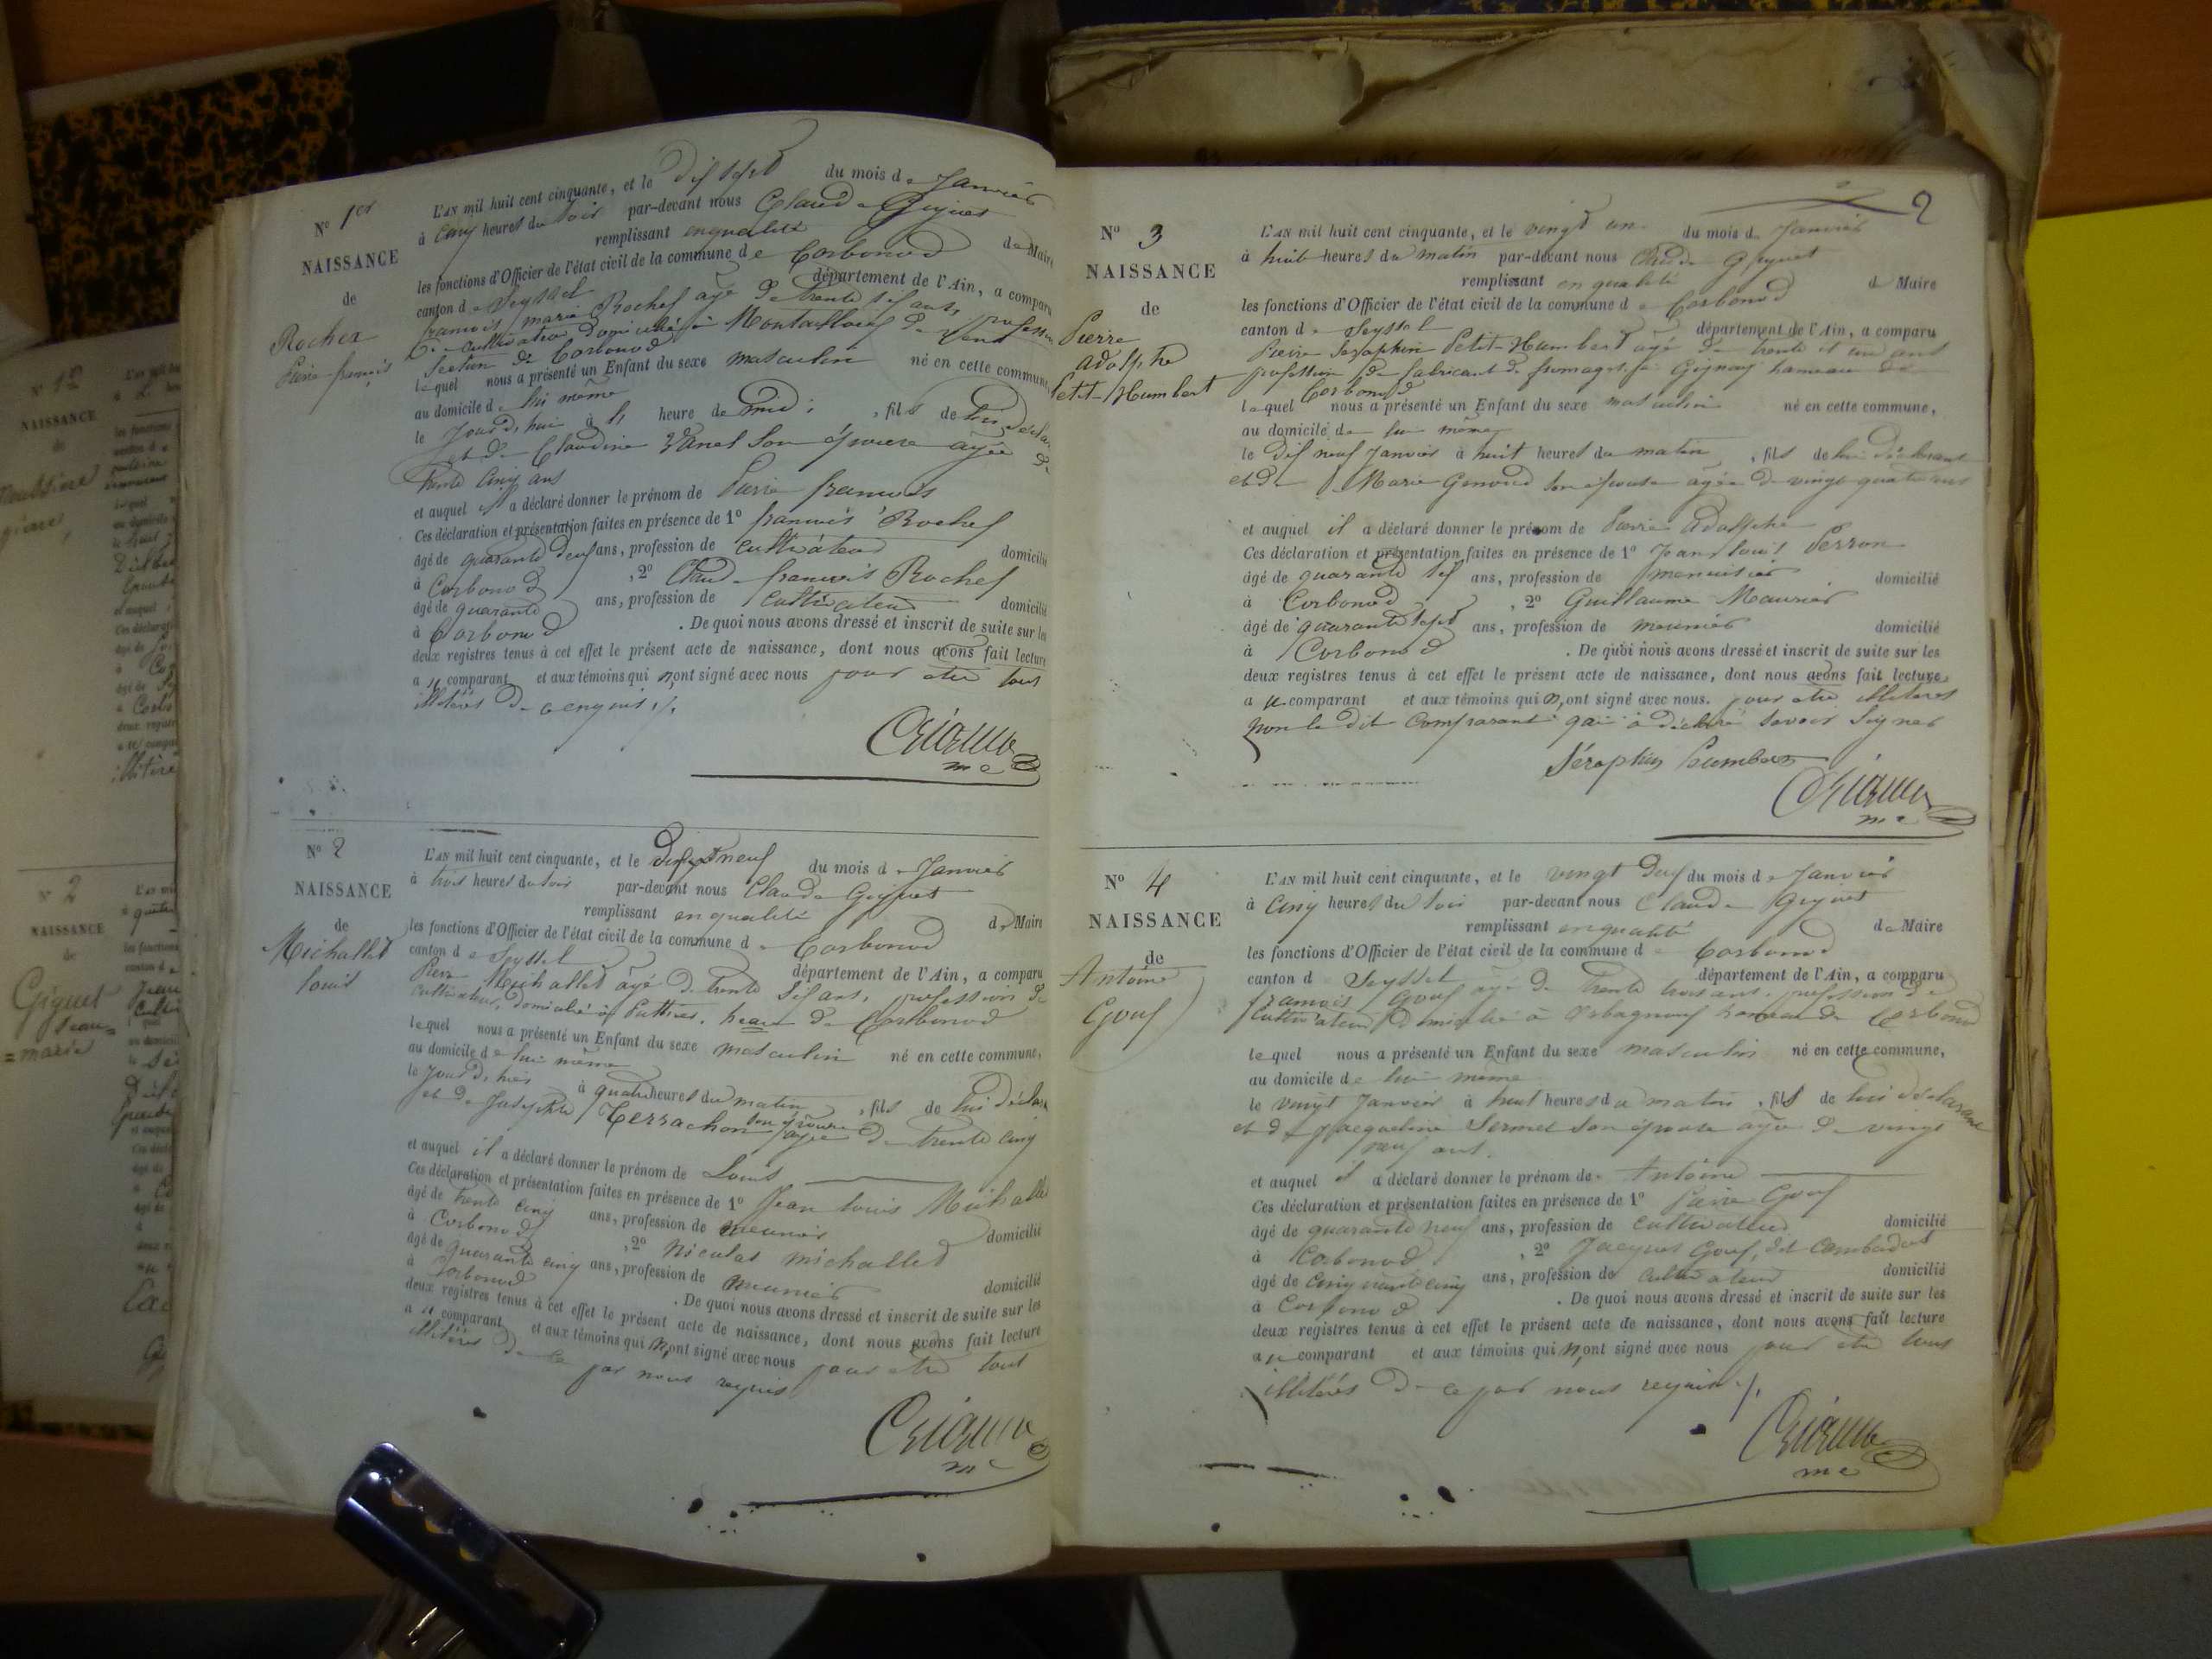 N° 1er
NAISSANCE
de
Rochex
Pierre françois
L'AN mil huit cent cinquante, et le dix sept du mois de Janvier
à cinq heures du soir par-devant nous Claude Giguet
remplissant en qualité de Maire
les fonctions d'Officier de l'état civil de la commune de Corbonod
canton de Seyssel département de l'Ain, a comparu
françois marie Rochex âgé de trente six ans, profession
de cultivateur domicilié à
Section de Corbonod
lequel nous a présenté un Enfant du sexe masculin né en cette commune,
au domicile de lui même
le Jourd'hui à heure de midi, fils de lui
et de Claudine Vanel son épouse âgée de
trente cinq ans
et auquel il a déclaré donner le prénom de Pierre françois
Ces déclaration et présentation faites en présence de 1° françois Rochex
âgé de quarante deux ans, profession de cultivateur domicilié
à Corbonod, 2° Claude françois Rochex
âgé de quarante ans, profession de cultivateur domicilié
à Corbonod. De quoi nous avons dressé et inscrit de suite sur les
deux registres tenus à cet effet le présent acte de naissance, dont nous avons fait lecture
au comparant et aux témoins qui n'ont signé avec nous pour être tous
illitérés de ce enquis
N° 2
NAISSANCE
de
Michallet
louis
L'AN mil huit cent cinquante, et le dix neuf du mois de Janvier
à trois heures du soir par-devant nous Claude Giguet
remplissant en qualité de Maire
les fonctions d'Officier de l'état civil de la commune de Corbonod
canton de Seyssel département de l'Ain, a comparu
Pierre Michallet âgé de trente six ans, profession de
cultivateur, domicilié à heau de Corbonod
lequel nous a présenté un Enfant du sexe masculin né en cette commune,
au domicile de lui même
le Jourd'hier à quatre heures du matin, fils de lui déclarant
et de Josephte Terrachon son épouse âgée de trente cinq
et auquel il a déclaré donner le prénom de Louis
Ces déclaration et présentation faites en présence de 1° Jean louis Michallet
âgé de trente cinq ans, profession de meunier domicilié
à Corbonod, 2° Nicolas michallet
âgé de quarante cinq ans, profession de meunier domicilié
à Corbonod. De quoi nous avons dressé et inscrit de suite sur les
deux registres tenus à cet effet le présent acte de naissance, dont nous avons fait lecture
au comparant et aux témoins qui n'ont signé avec nous pour être tous
illitérés de ce par nous requis
2
N° 3
NAISSANCE
de
Pierre
adolphe
Petit-Humbert
L'AN mil huit cent cinquante, et le vingt un du mois de Janvier
à huit heures du matin par-devant nous Claude Giguet
remplissant en qualité de Maire
les fonctions d'Officier de l'état civil de la commune de Corbonod
canton de Seyssel département de l'Ain, a comparu
Pierre Seraphin Petit-Humbert âgé de trente et un ans
profession de fabricant de fromages, à Gignay hameau de
Corbonod
lequel nous a présenté un Enfant du sexe masculin né en cette commune,
au domicile de lui même
le dix neuf Janvier à huit heures du matin, fils de lui déclarant
et de Marie Genoud son épouse âgée de vingt quatre ans
et auquel il a déclaré donner le prénom de Pierre adolphe
Ces déclaration et présentation faites en présence de 1° Jean louis Perron
âgé de quarante six ans, profession de menuisier domicilié
à Corbonod, 2° Guillaume Maurier
âgé de quarante sept ans, profession de meunier domicilié
à Corbonod. De quoi nous avons dressé et inscrit de suite sur les
deux registres tenus à cet effet le présent acte de naissance, dont nous avons fait lecture
au comparant et aux témoins qui n'ont signé avec nous. pour être illiterés
non le dit comparant qui a déclaré savoir signer
Séraphin humbert
N° 4
NAISSANCE
de
Antoine
Gouf
L'AN mil huit cent cinquante, et le vingt deux du mois de Janvier
à cinq heures du soir par-devant nous Claude Giguet
remplissant en qualité de Maire
les fonctions d'Officier de l'état civil de la commune de Corbonod
canton d Seyssel département de l'Ain, a comparu
françois Gouf âgé de trente trois ans, profession de
cultivateur domicilié à Orbagnoux hameau de Corbonod
lequel nous a présenté un Enfant du sexe masculin né en cette commune,
au domicile de lui même
le vingt Janvier à huit heures du matin, fils de lui déclarant
et de Jacqueline Sermet son épouse âgée de vingt
neuf ans.
et auquel il a déclaré donner le prénom de Antoine
Ces déclaration et présentation faites en présence de 1° Pierre Gouf
âgé de quarante neuf ans, profession de cultivateur domicilié
à Corbonod, 2° Jacques Gouf, dit
âgé de cinquante cinq ans, profession de cultivateur domicilié
à Corbonod. De quoi nous avons dressé et inscrit de suite sur les
deux registres tenus à cet effet le présent acte de naissance, dont nous avons fait lecture
au comparant et aux témoins qui n'ont signé avec nous pour être tous
illitérés de ce par nous requis
N° 2
NAISSANCE
de
Giguet
Jean=
=marie